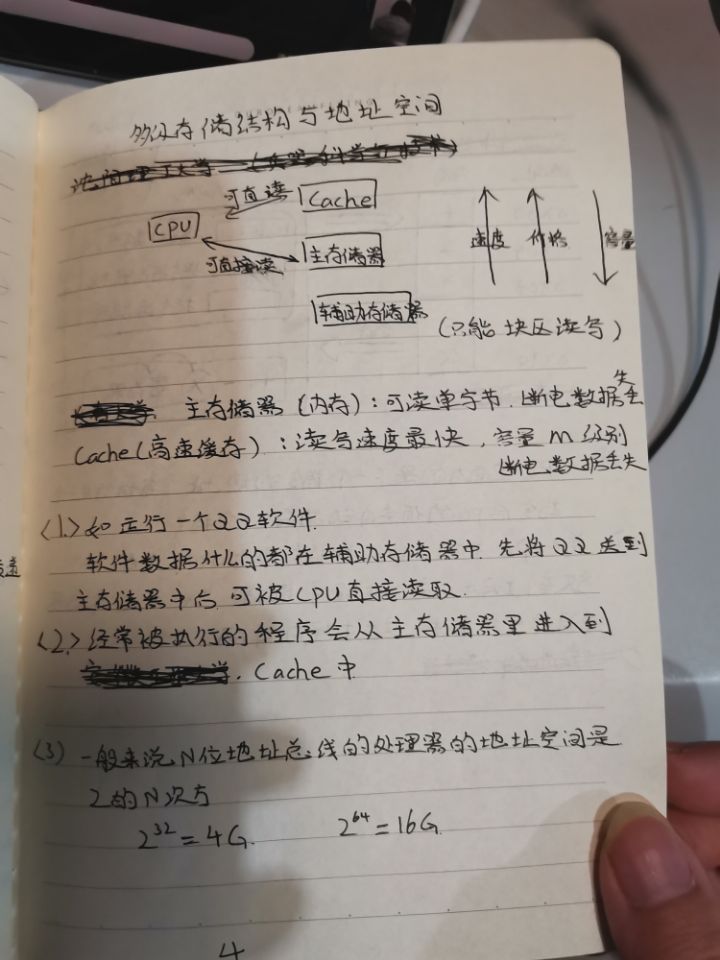 多级存储结构与地址空间
可直读
Cache
CPU
速度 价格 容量
主存储器
可直接读
辅助存储器
(只能块区读写)
主存储器(内存):可读单字节.断电数据丢失
Cache(高速缓存):读写速度最快,容量m级别
断电数据丢失
(1.)如运行一个QQ软件.
软件数据什么的都在辅助存储器中.先将QQ送到
主存储器中后,可被CPU直接读取.
(2.)经常被执行的程序会从主存储器里进入到
Cache中
(3)一般来说N位地址总线的处理器的地址空间是
2的N次方
2³²=4G. 2⁶⁴=16G.
4